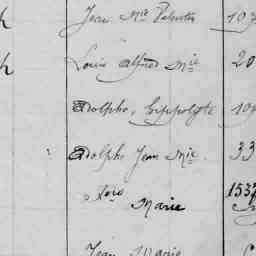 h Jean Mie 107
h Louis Alfred Mie 20
Adolphe, Hippolyte 109
Adolphe Jean Mie. 33
Marie 153
Jean Marie